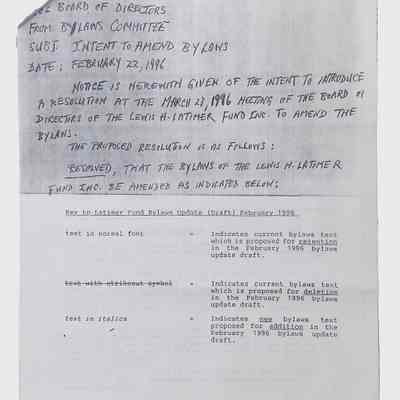 BOARD OF DIRECTORS
FROM: BYLAWS COMMITTEE
SUBJ: INTENT TO AMEND BYLAWS
DATE: FEBRUARY 22, 1996
NOTICE IS HEREWITH GIVEN OF THE INTENT TO INTRODUCE
A RESOLUTION AT THE MARCH 28, 1996 MEETING OF THE BOARD OF
DIRECTORS OF THE LEWIS H. LATIMER FUND INC. TO AMEND THE
BYLAWS.
THE PROPOSED RESOLUTION IS AS FOLLOWS:
RESOLVED, THAT THE BYLAWS OF THE LEWIS H. LATIMER
FUND INC. BE AMENDED AS INDICATED BELOW:
Key to Latimer Fund Bylaws Update (Draft) February 1996
text in normal font = Indicates current bylaws text
which is proposed for retention
in the February 1996 bylaws
update draft.
text with strikeout symbol = Indicates current bylaws text
which is proposed for deletion
in the February 1996 bylaws
update draft.
text in italics = Indicates new bylaws text
proposed for addition in the
February 1996 bylaws update
draft.